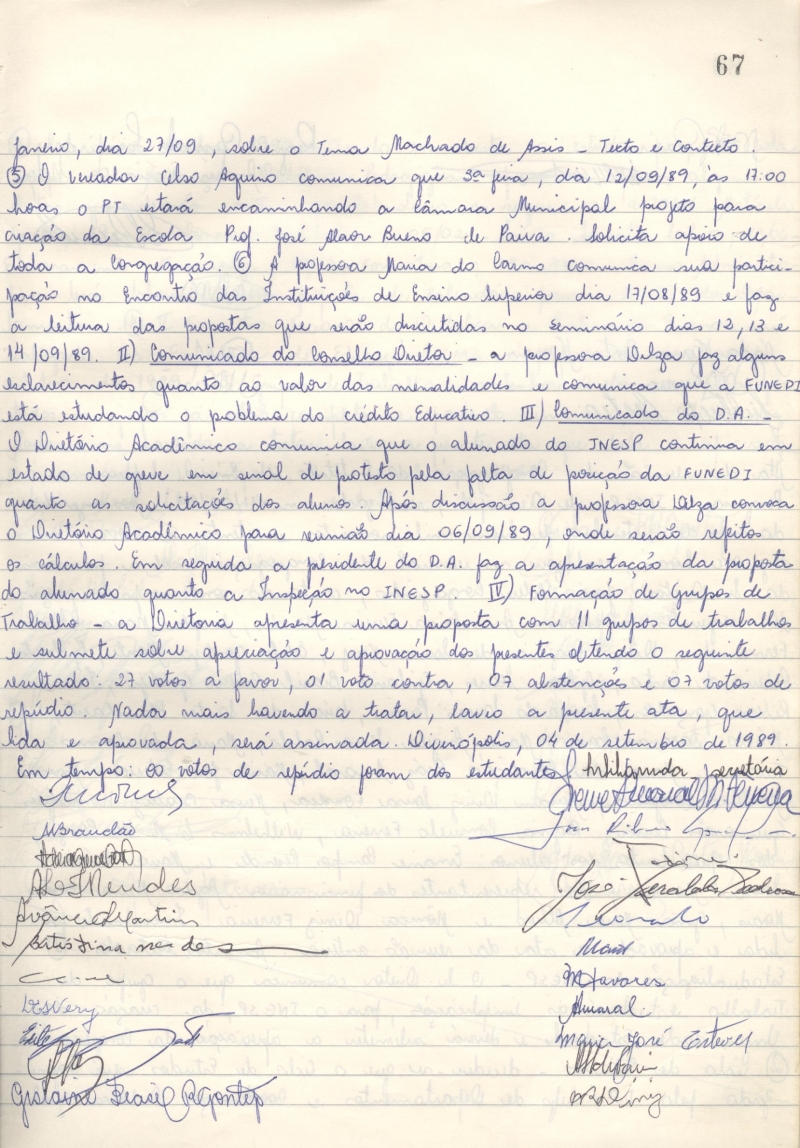 67
Janeiro, dia 27/09, sobre o Tema Machado de Assis - Texto e Contexto.
⑤ O vereador Celso Aquino comunica que 3ª feira, dia 12/09/89, às 17:00
horas o PT estará encaminhando a Câmara Municipal projeto para
criação da Escola Prof. José Alaor Bueno de Paiva. Solicita apoio de
toda a Congregação. ⑥ A professora Maria do Carmo comunica sua partici-
pação no Encontro das Instituições de Ensino Superior dia 17/08/89 e faz
a leitura das propostas que serão discutidas no Seminário dias 12, 13 e
14/09/89. II) Comunicado do Conselho Diretor - a professora Dilza faz alguns
esclarecimentos quanto ao valor das mensalidades e comunica que a FUNEDI
está estudando o problema do crédito Educativo. III) Comunicado do D.A. -
O Diretório Acadêmico comunica que o alunado do INESP continua em
estado de greve em sinal de protesto pela falta de posição da FUNEDI
quanto as solicitações dos alunos. Após discussão a professora Dilza convoca
o Diretório Acadêmico para reunião dia 06/09/89, onde serão refeitos
os cálculos. Em seguida a presidente do D.A. faz a apresentação da proposta
do alunado quanto a Inspeção no INESP. IV) Formação de Grupos de
Trabalho - a Diretoria apresenta uma proposta com 11 grupos de trabalhos
e submete sobre apreciação e aprovação dos presentes obtendo o seguinte
resultado: 27 votos a favor, 01 voto contra, 07 abstenções e 07 votos de
repúdio. Nada mais havendo a tratar, lavro a presente ata, que
lida e aprovada, será assinada. Divinópolis, 04 de setembro de 1989.
Em tempo: os votos de repúdio foram dos estudantes secretária
MBrandão
Mendes
José
Martins
Batistina mendes
MTavares
Amaral.
Maria José Esteves
Gislaine Brasil R Gontijo